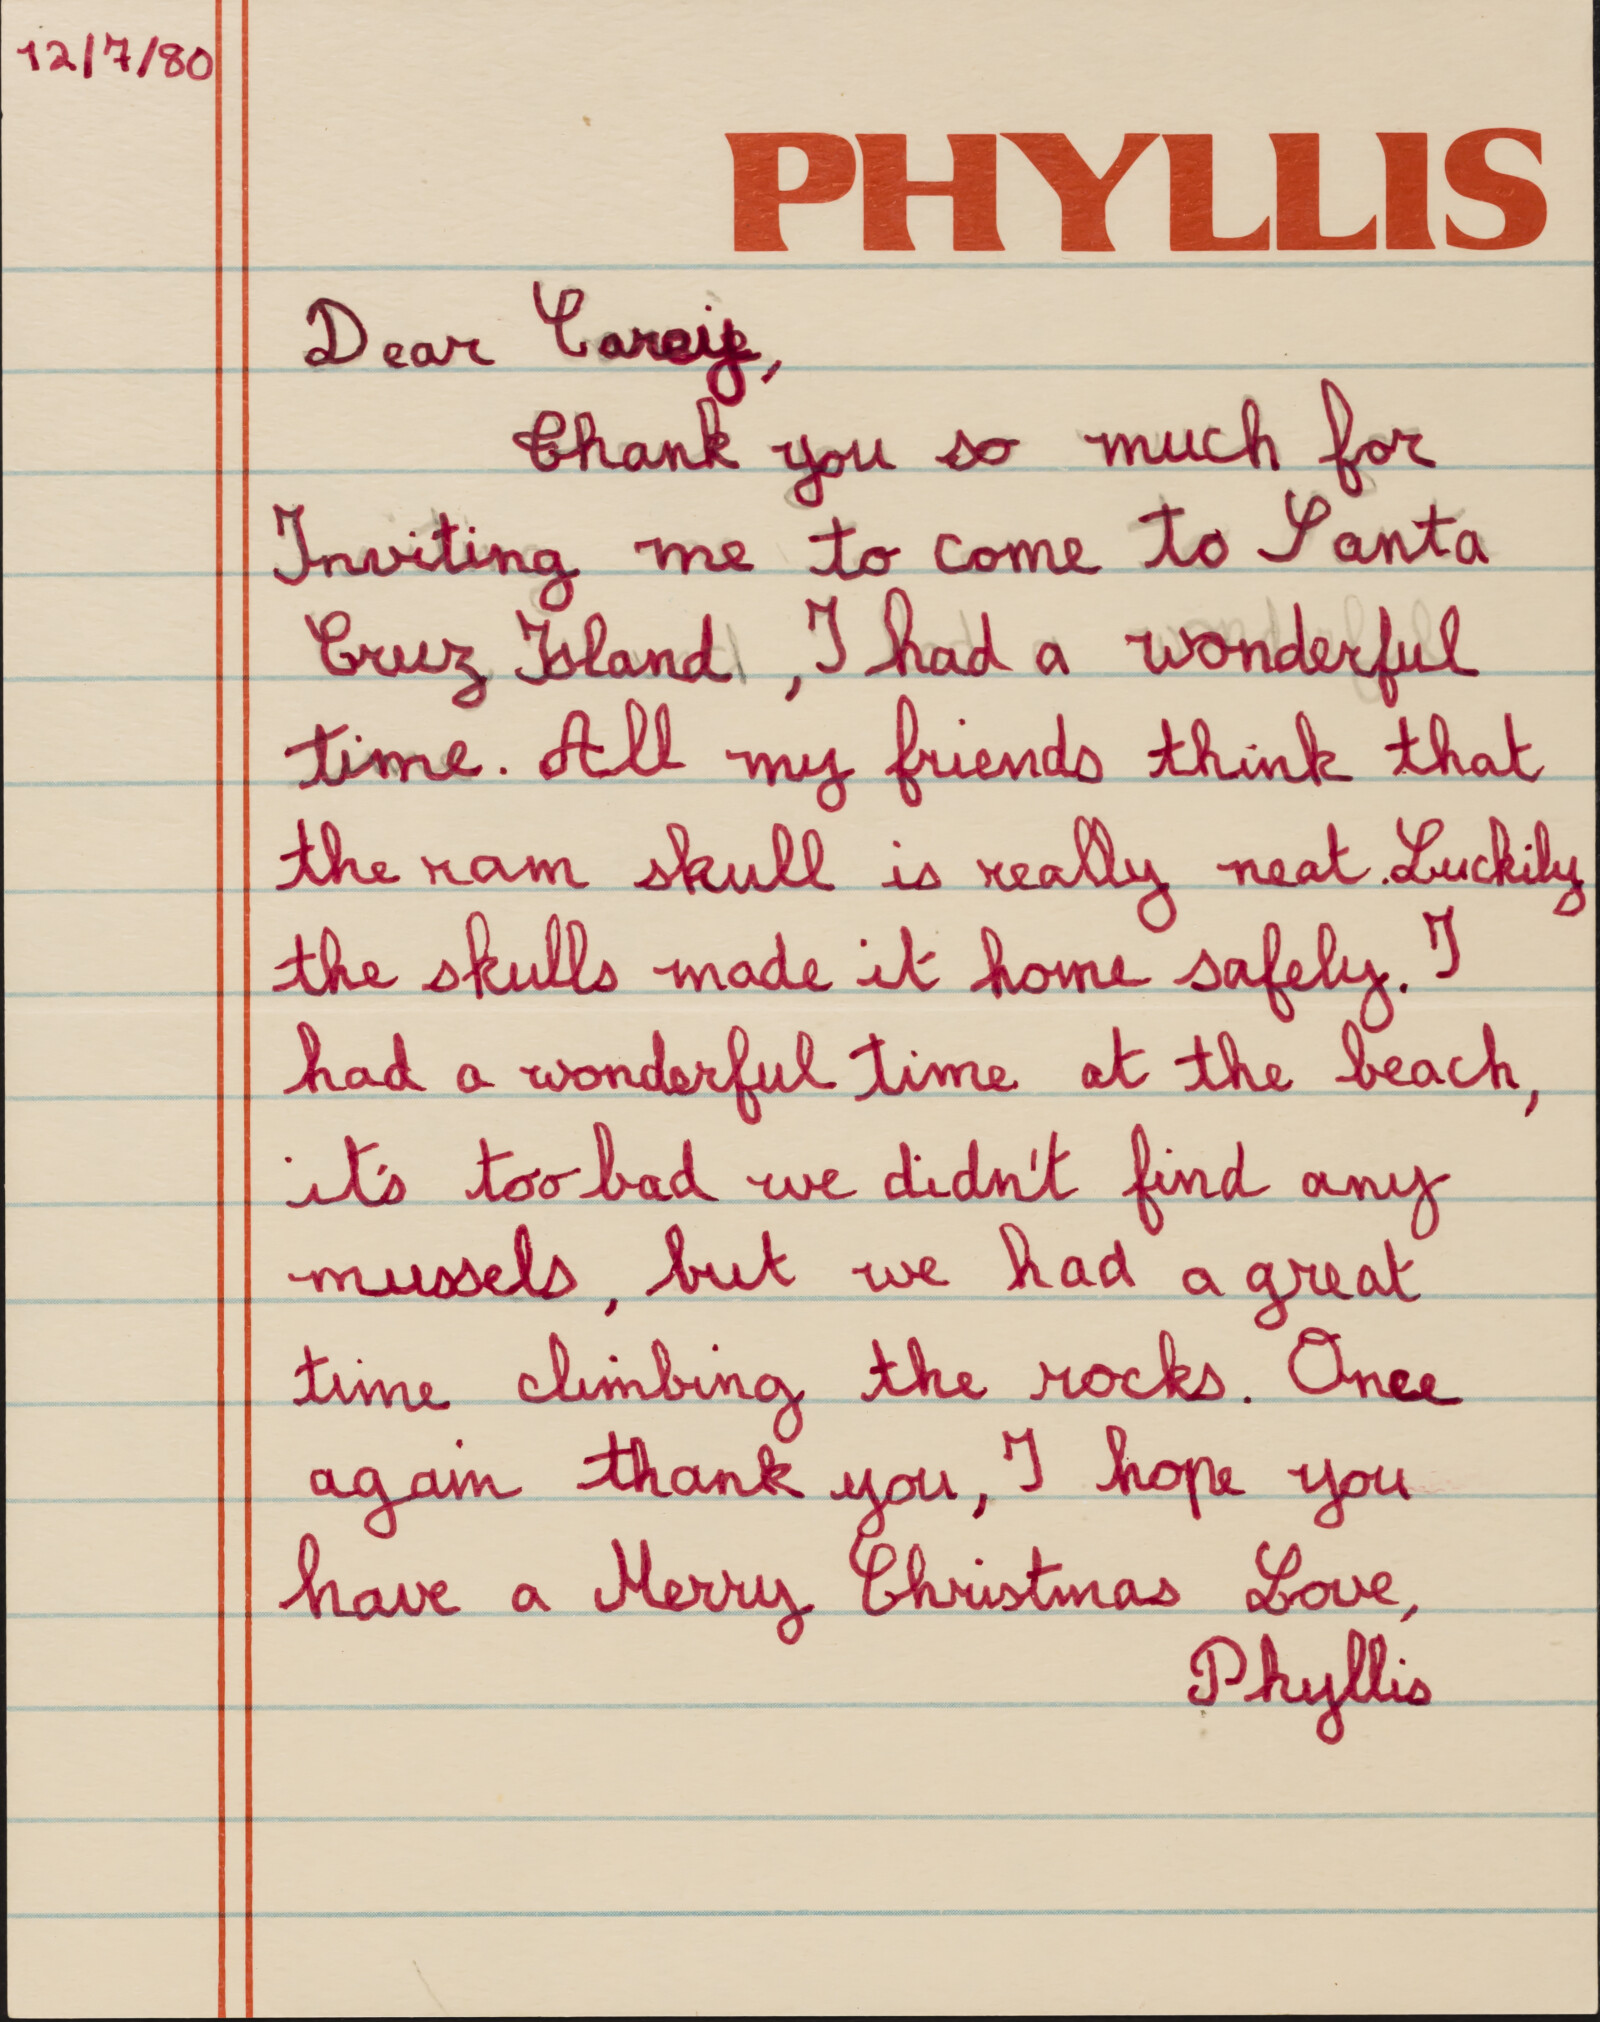 12/7/80
PHYLLIS
Dear
Thank you so much for
Inviting me to come to Santa
Cruz Island, I had a wonderful
time. All my friends think that
the ram skull is really neat. Luckily
the skulls made it home safely. I
had a wonderful time at the beach,
it's too bad we didn't find any
mussels, but we had a great
time climbing the rocks. Once
again thank you, I hope you
have a Merry Christmas Love,
Phyllis